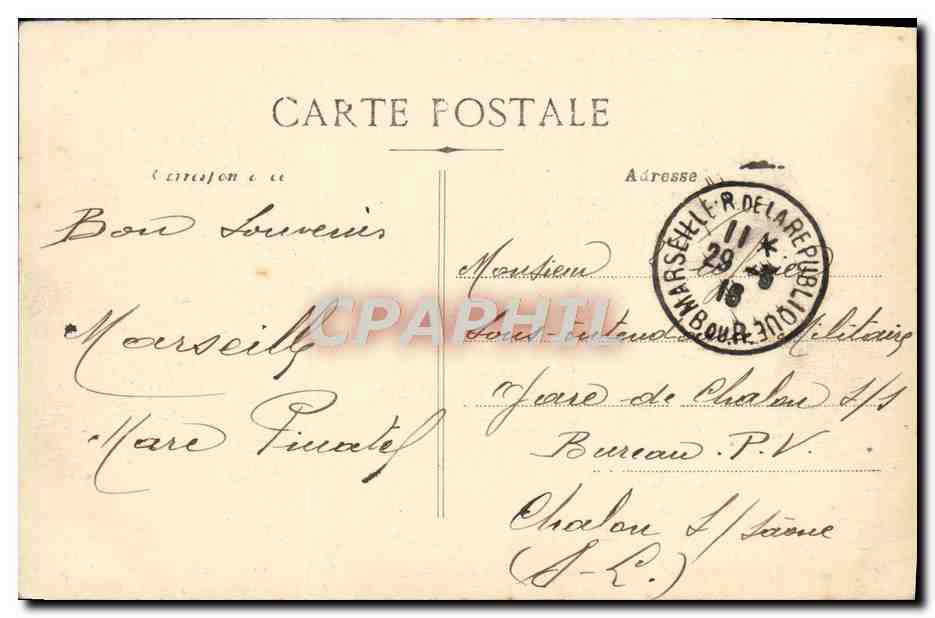 CARTE POSTALE
Adresse
Bon Souvenir
Marseille
Marc Pinatel
Monsieur
Sous-intendance Militaire
Gare de Chalon S/S
Bureau. P.V.
Chalon S/Saône
(S-L.)
MARSEILLE-R. DE LA REPUBLIQUE Bou-
11 *
29 -5
18
CPAPHIL